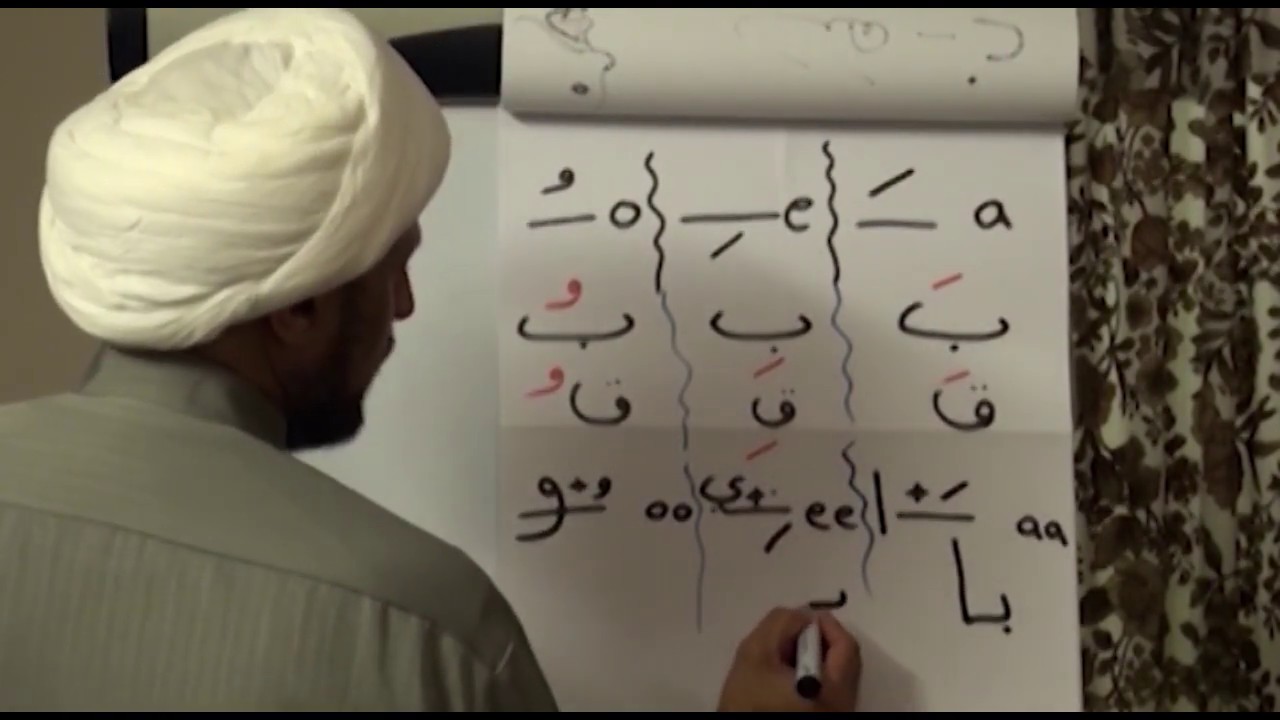 a ـَ e ـِ o ـُ
بَ بِ بُ
قَ قِ قُ
aa ـَ + ا ee ـِ + ي oo ـُ + و
با بـ